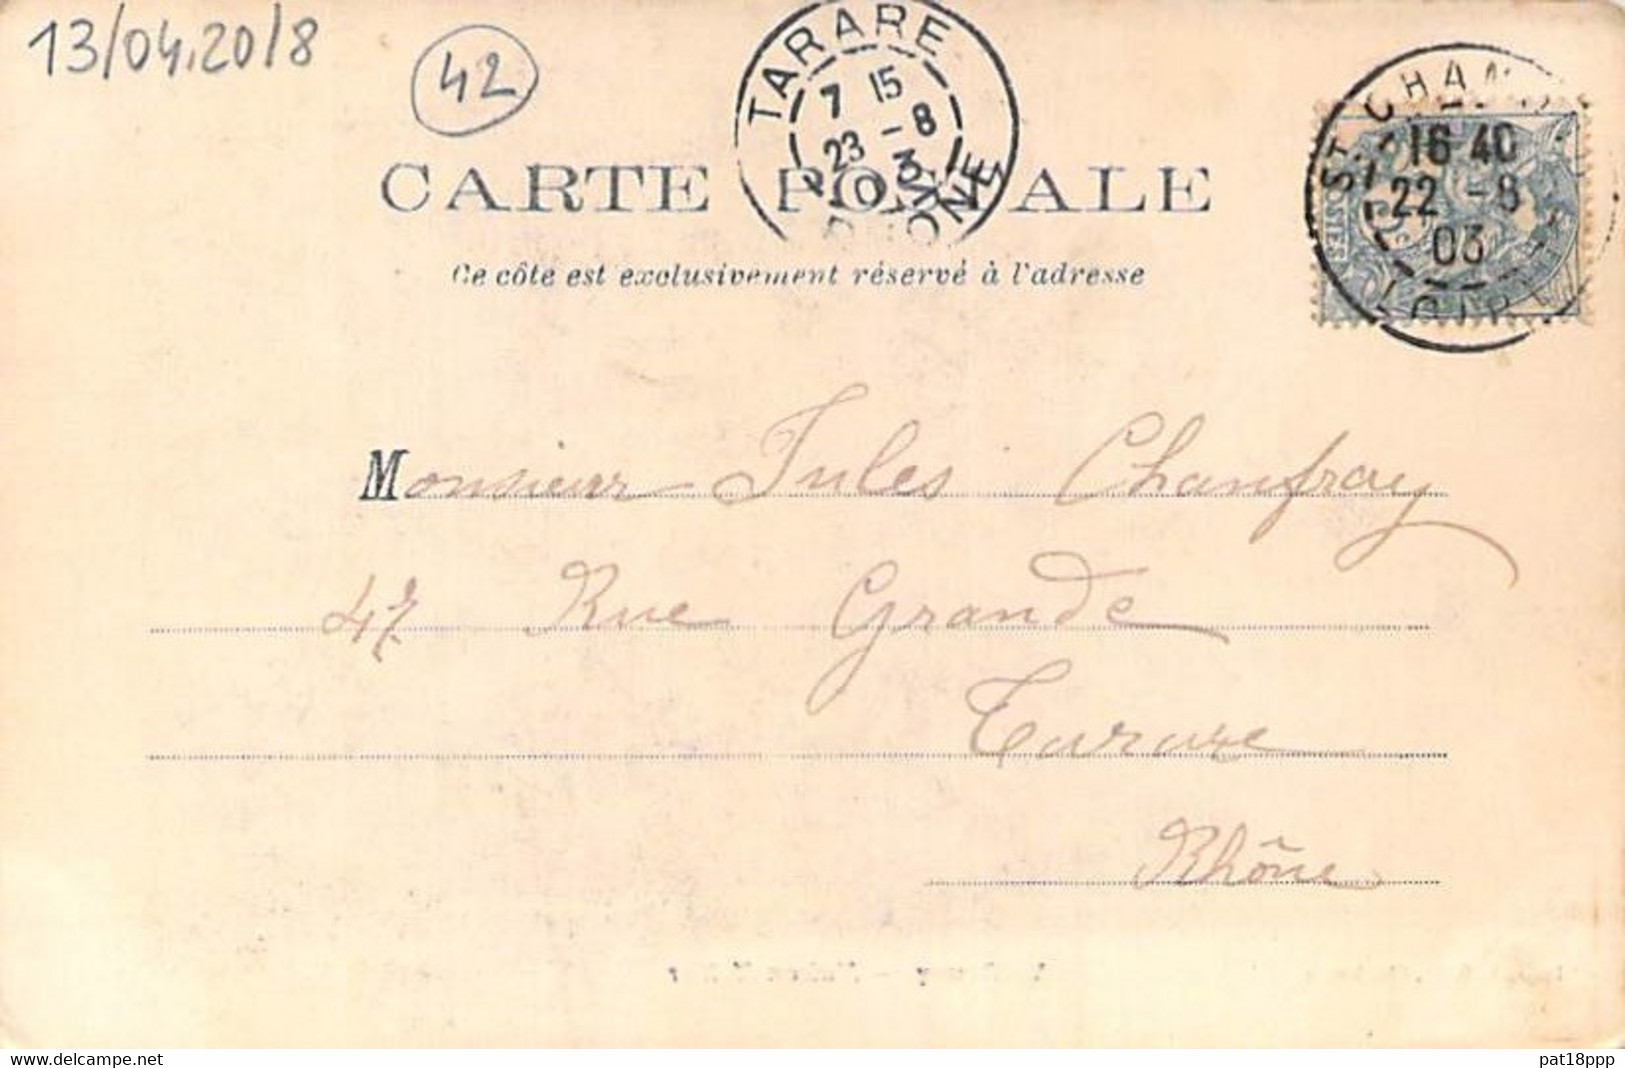 13/04.2018
42
TARARE
7 15
23 - 8
03
RHONE
ST CHAM
16 40
22 - 8
03
LOIRE
POSTES
CARTE POSTALE
Ce côte est exclusivement réservé à l'adresse
Monsieur Jules Chanfray
47 Rue Grande
Tarare
Rhône
www.delcampe.net
pat18ppp